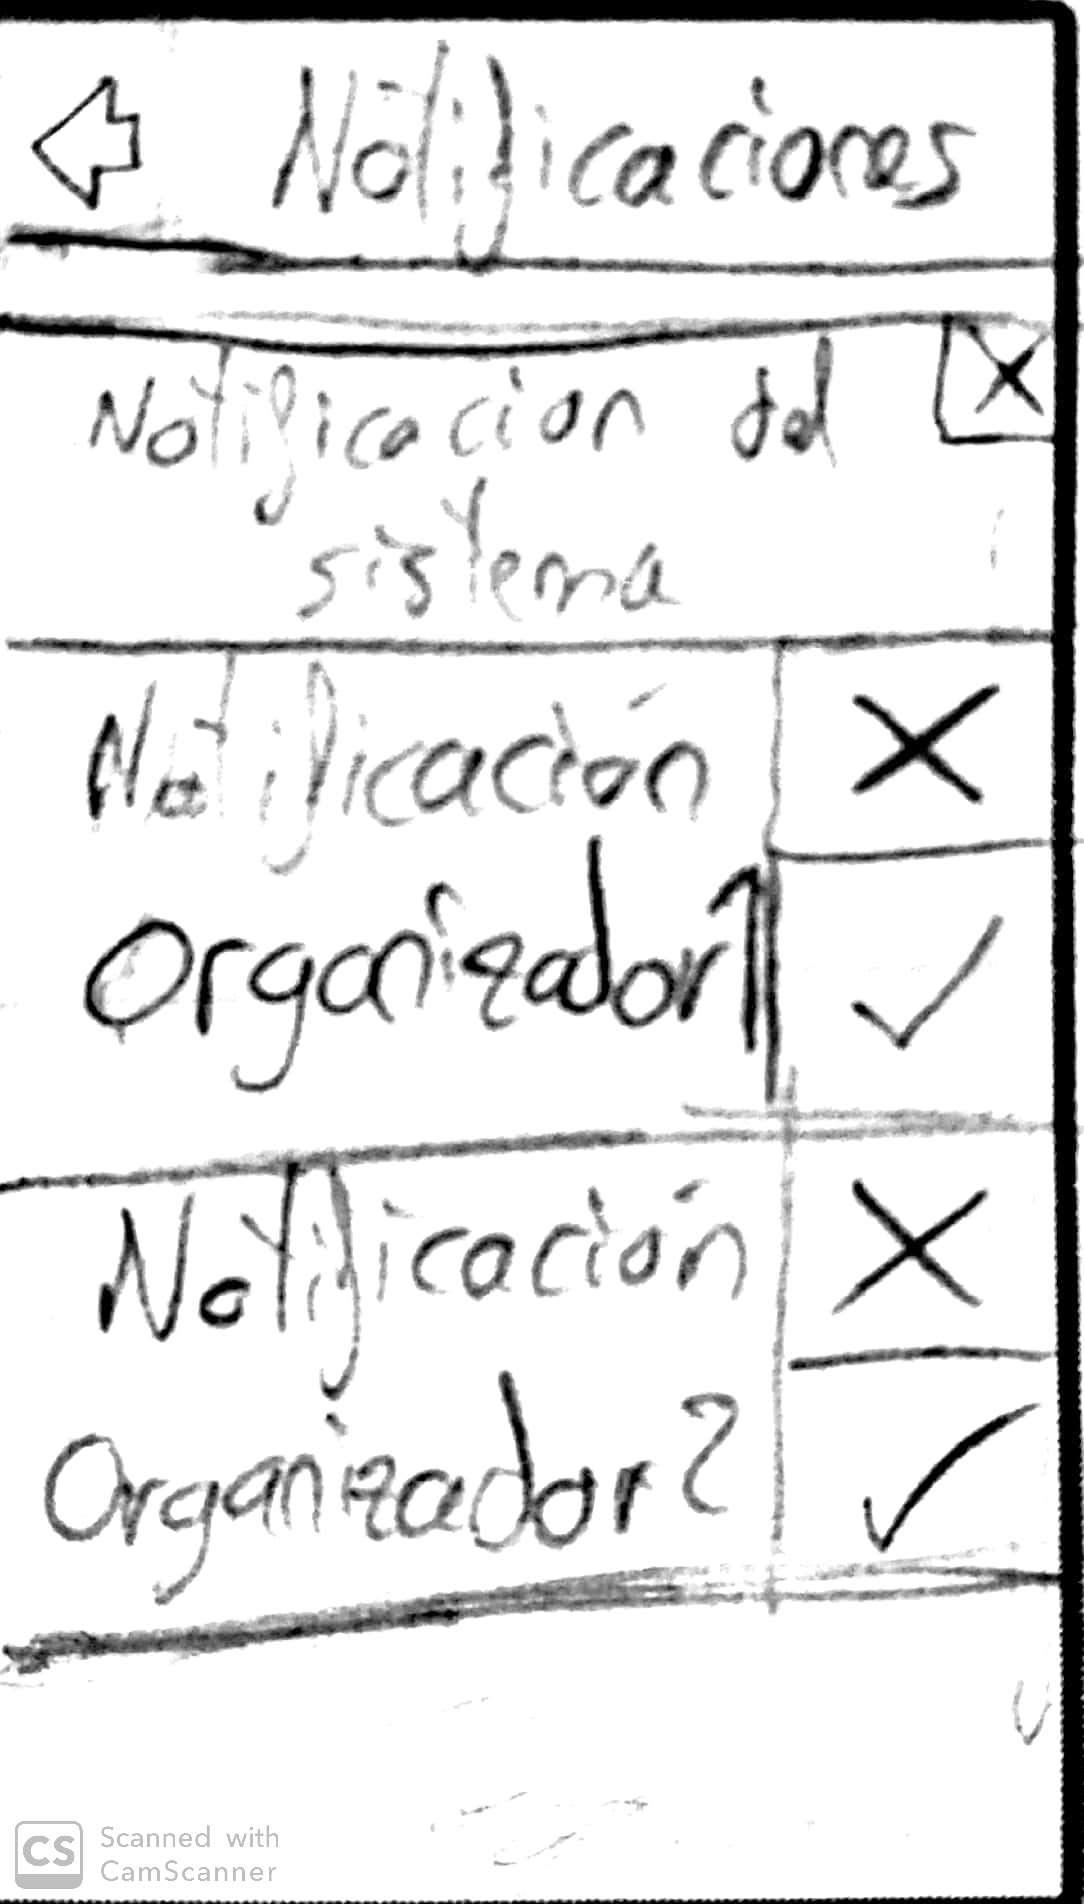 Notificaciones
Notificacion del
sistema
Notificación
Organizador 1
Notificación
Organizador 2
CS Scanned with
CamScanner